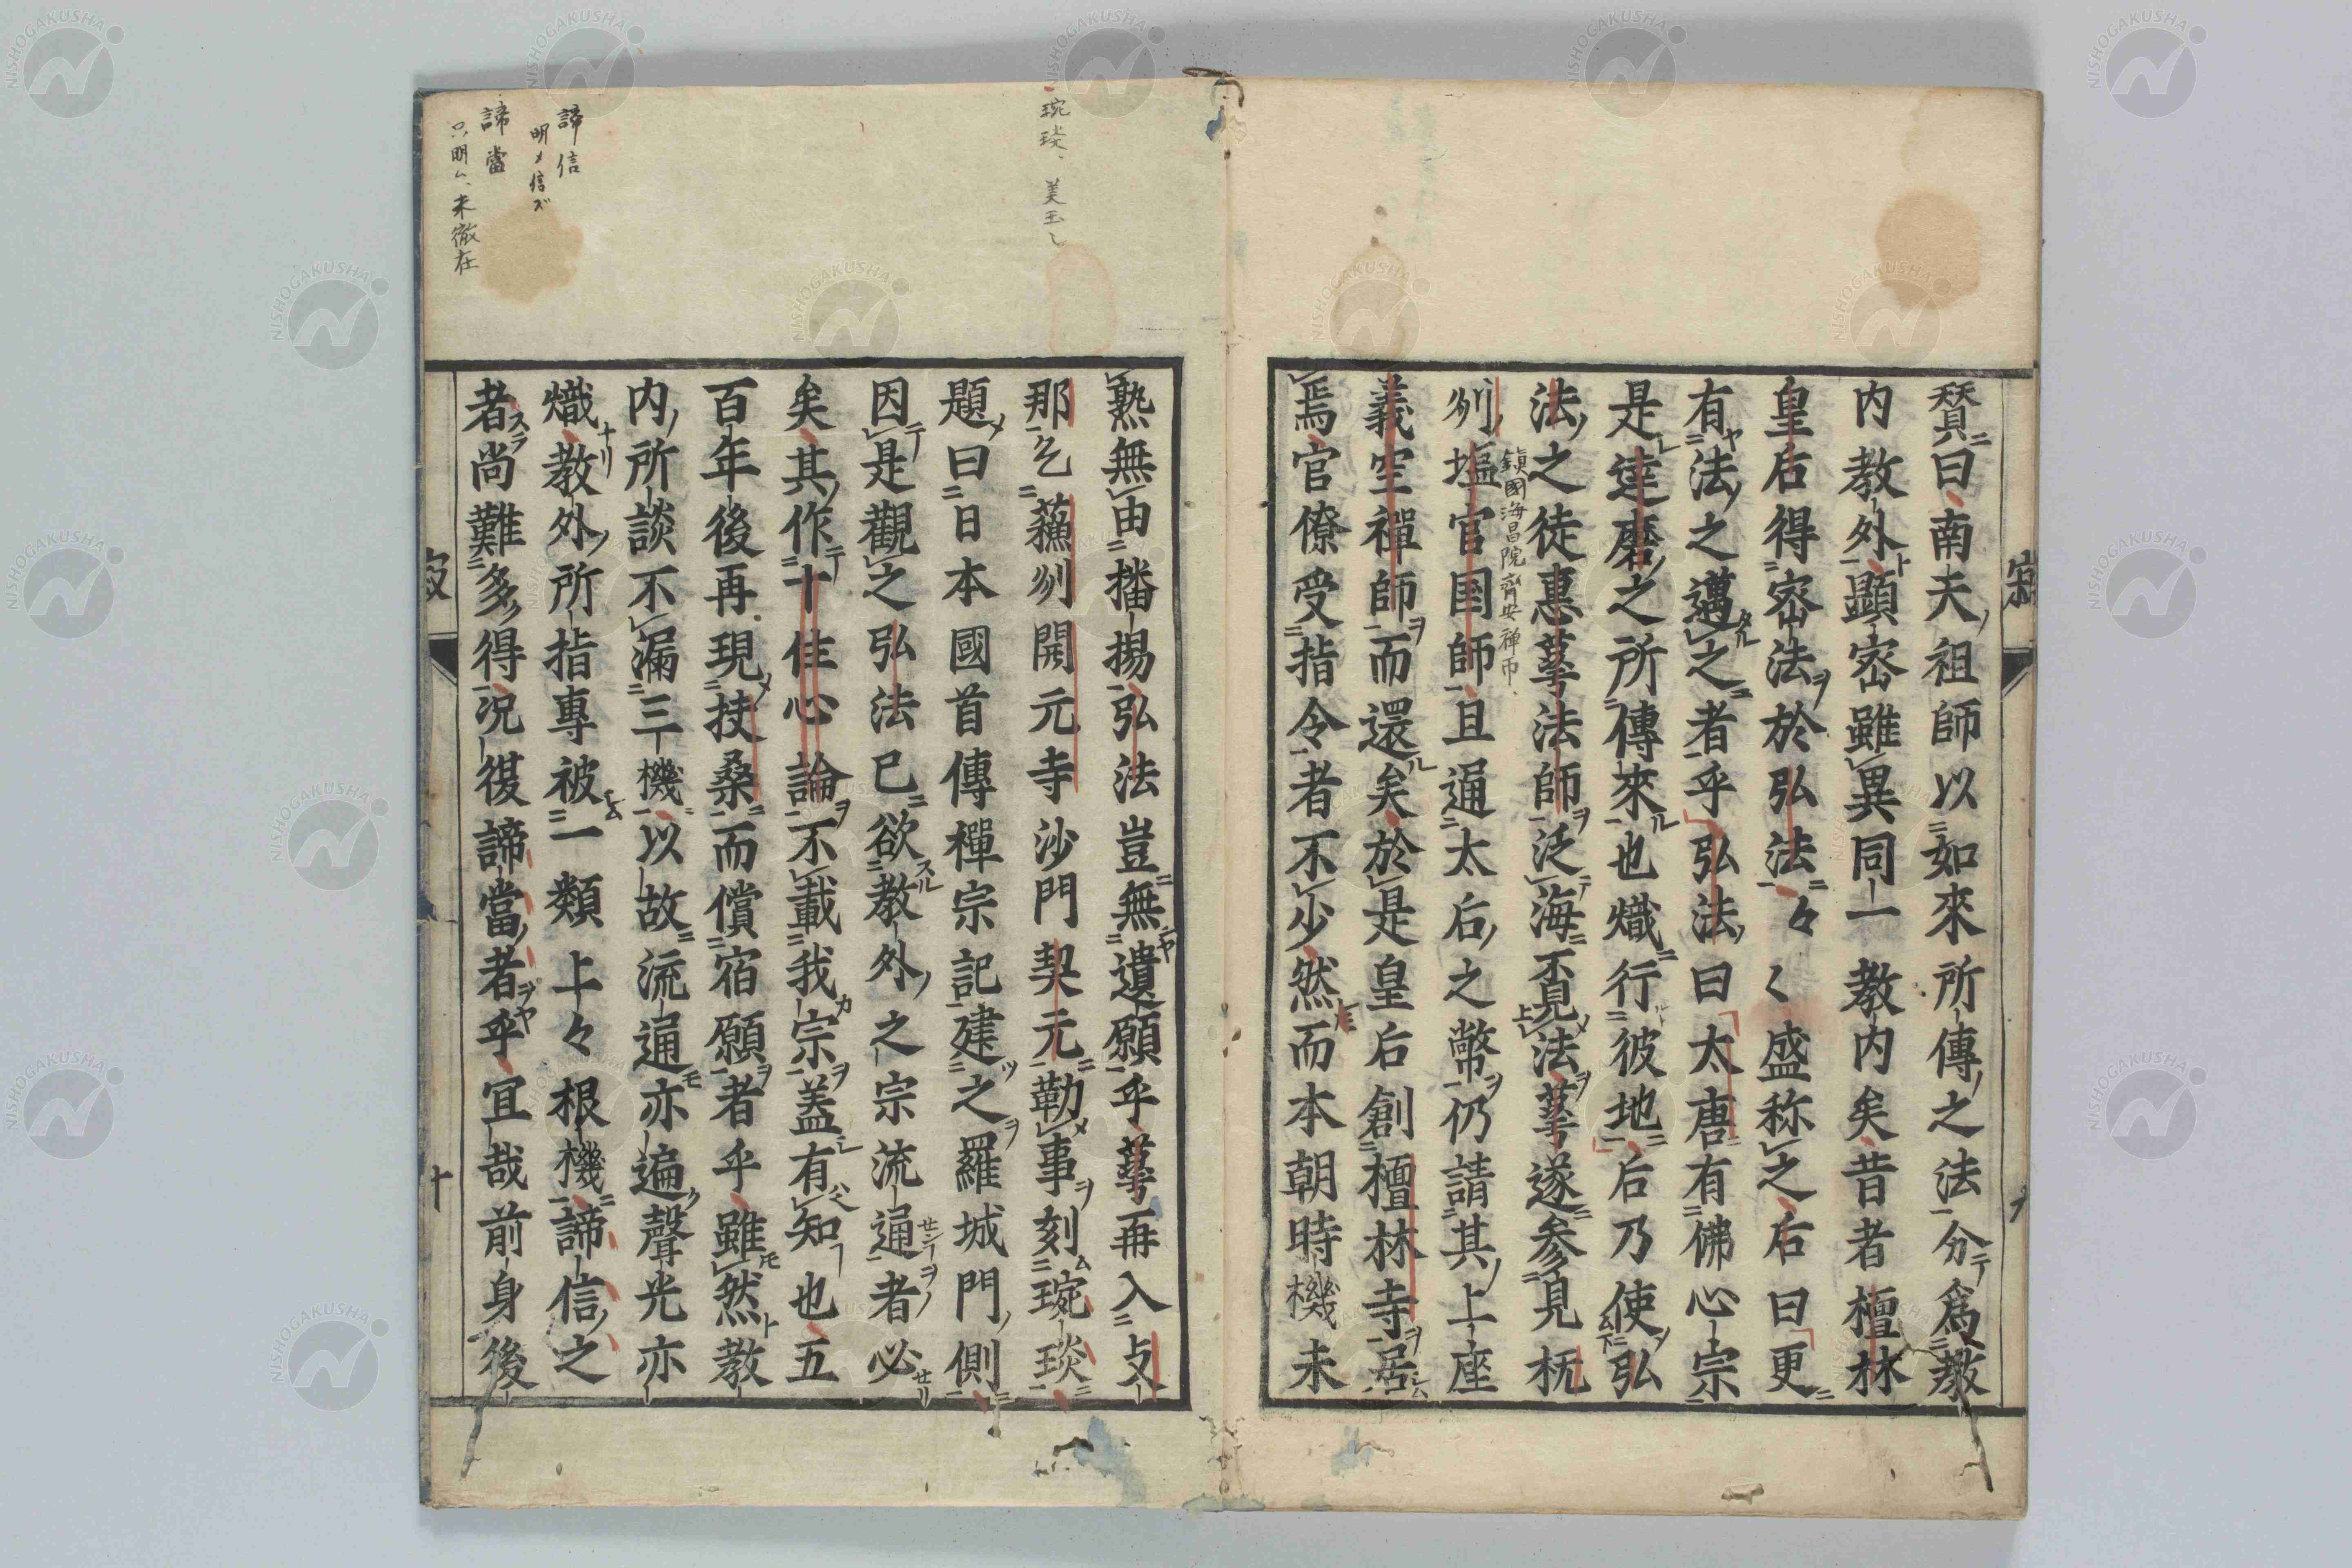 賛曰南夫祖師以如來所傳之法分爲教
内教外顯密雖異同一教内矣昔者檀林
皇后得密法於弘法々々盛称之后曰更
有法之邁之者乎弘法曰太唐有佛心宗
是達磨之所傳來也熾行彼地后乃使弘
法之徒惠萼法師泛海覓法萼遂参見杭
州塩官国師且通太后之幣仍請其上座
鎮國海昌院齊安禅師
義空禪師而還矣於是皇后創檀林寺居
焉官僚受指令者不少然而本朝時機未
熟無由播揚弘法豈無遺願乎萼再入支
那乞蘓州開元寺沙門契元勒事刻琬琰
題曰日本國首傳禪宗記建之羅城門側
因是觀之弘法已欲教外之宗流通者必
矣其作十住心論不載我宗盖有知也五
百年後再現扶桑而償宿願者乎雖然教
内所談不漏三機以故流通亦遍聲光亦
熾教外所指專被一類上々根機諦信之
者尚難多得况復諦當者乎冝哉前身後
琬琰、美玉也
諦信
明メ信ズ
諦當
只明ム、未徹在
十
NISHOGAKUSHA